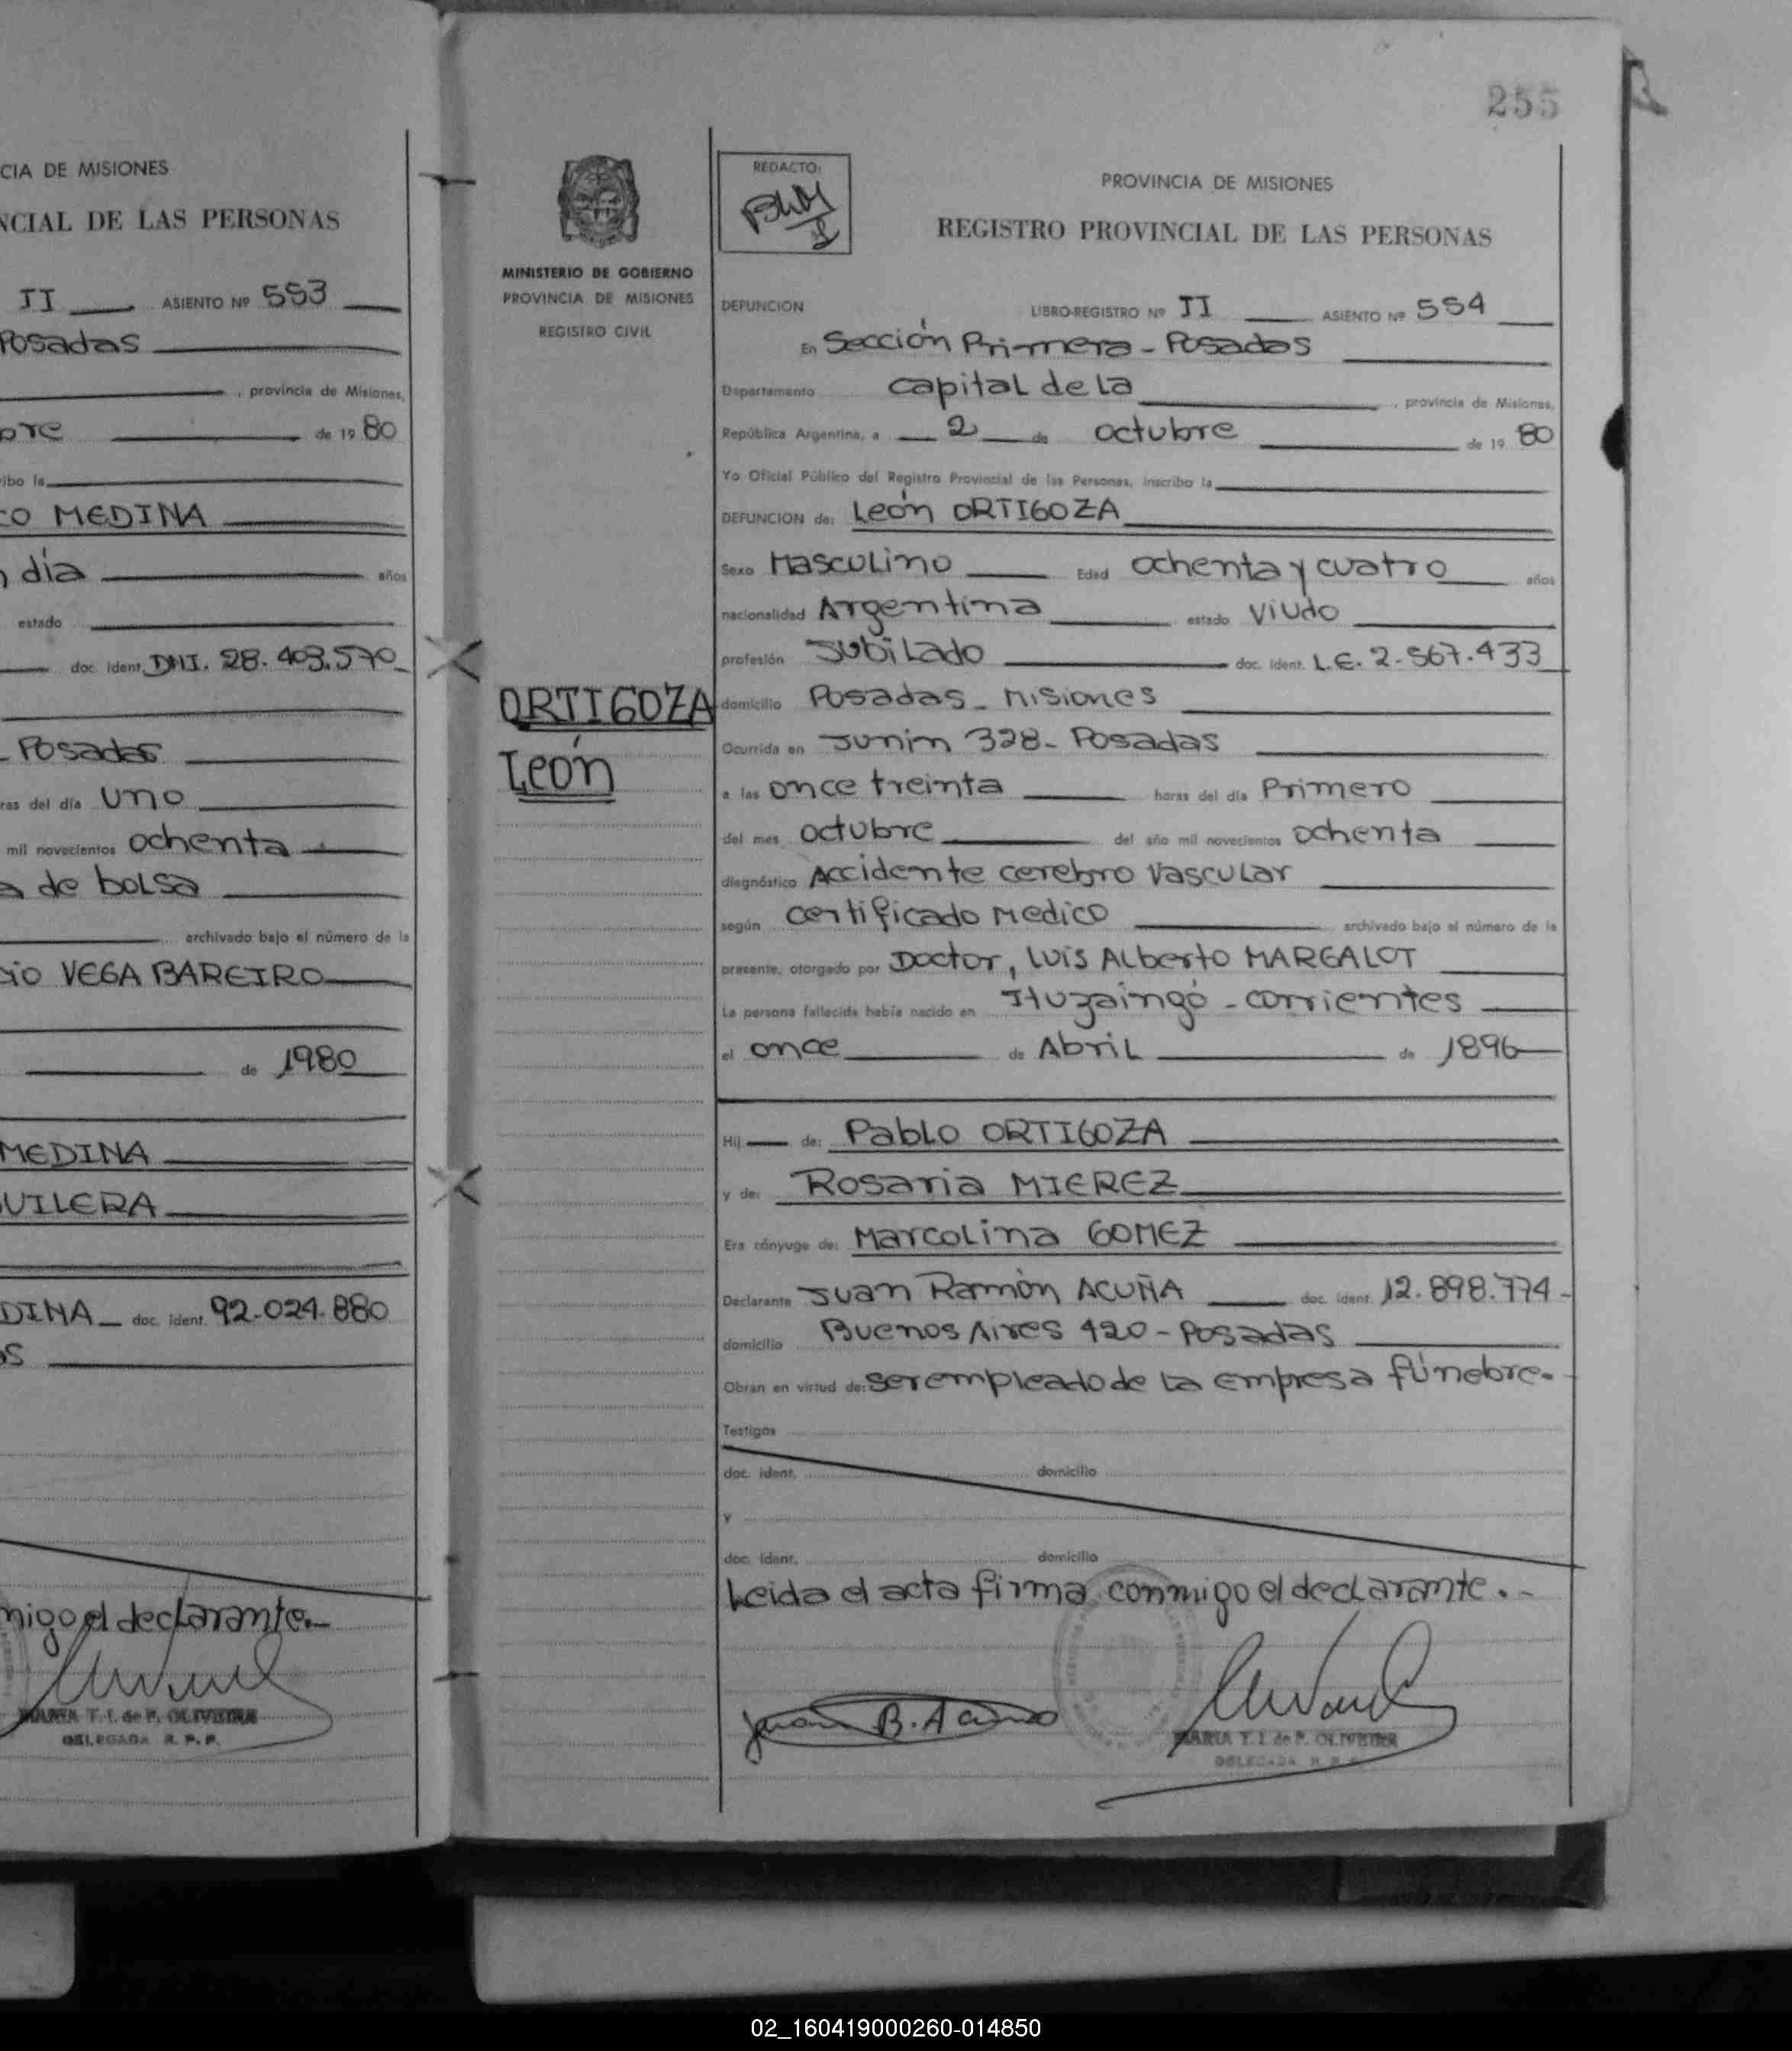 CIA DE MISIONES
NCIAL DE LAS PERSONAS
II ASIENTO Nº 553
Posadas
, provincia de Misiones,
bre de 19 80
ibo la
co MEDINA
n día años
estado
doc. ident. DNI. 28.403.570
Posadas
ras del día uno
mil novecientos ochenta
a de bolsa
archivado bajo el número de la
cio VEGA BAREIRO
de 1980
MEDINA
UILERA
DINA doc. ident. 92.024.880
os
migo el declarante.
MARIA T. I. de P. OLIVEIRA
DELEGADA R. P. P.
255
MINISTERIO DE GOBIERNO
PROVINCIA DE MISIONES
REGISTRO CIVIL
ORTIGOZA
León
REDACTO:
PROVINCIA DE MISIONES
REGISTRO PROVINCIAL DE LAS PERSONAS
DEFUNCION LIBRO-REGISTRO Nº II ASIENTO Nº 554
En Sección Primera - Posadas
Departamento capital de la , provincia de Misiones,
República Argentina, a 2 de octubre de 19 80
Yo Oficial Público del Registro Provincial de las Personas, inscribo la
DEFUNCION de: León ORTIGOZA
Sexo Masculino Edad ochenta y cuatro años
nacionalidad Argentina estado viudo
profesión Jubilado doc. ident. L.E. 2.567.433
domicilio Posadas - Misiones
Ocurrida en Junín 328 - Posadas
a las once treinta horas del día Primero
del mes octubre del año mil novecientos ochenta
diagnóstico Accidente cerebro Vascular
según certificado Medico archivado bajo el número de la
presente, otorgado por Doctor, Luis Alberto MARGALOT
La persona fallecida había nacido en Ituzaingó - corrientes
el once de Abril de 1896
Hij de: Pablo ORTIGOZA
y de: Rosaria MIEREZ
Era cónyuge de: Marcolina GOMEZ
Declarante Juan Ramón ACUÑA doc. ident. 12.898.774 -
domicilio Buenos Aires 420 - Posadas
Obran en virtud de: ser empleado de la empresa fúnebre.
Testigos
doc. ident. domicilio
y
doc. ident. domicilio
Leida el acta firma conmigo el declarante. -
MARIA T. I. de P. OLIVEIRA
DELEGADA R. P. P.
02_160419000260-014850